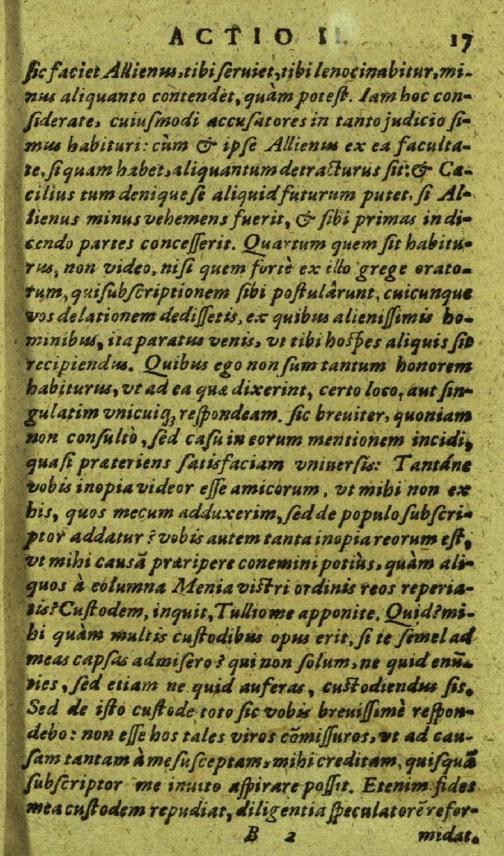 ACTIO II. 17
sic faciet Allienus, tibi seruiet, tibi lenocinabitur, mi-
nus aliquanto contendet, quàm potest. Iam hoc con-
siderate, cuiusmodi accusatores in tanto judicio si-
mus habituri: cùm & ipse Allienus ex ea faculta-
te, si quam habet, aliquantum detracturus sit: & Cæ-
cilius tum denique se aliquid futurum putet, si Al-
lienus minus vehemens fuerit, & sibi primas in di-
cendo partes concesserit. Quartum quem sit habitu-
rus, non video, nisi quem fortè ex illo grege orato-
rum, qui subscriptionem sibi postulârunt, cuicunque
vos delationem dedissetis, ex quibus alienissimis ho-
minibus, ita paratus venis, vt tibi hospes aliquis sit
recipiendus. Quibus ego non sum tantum honorem
habiturus, vt ad ea quæ dixerint, certo loco, aut sin-
gulatim vnicuiq; respondeam. sic breuiter, quoniam
non consultò, sed casu in eorum mentionem incidi,
quasi præteriens satisfaciam vniuersis: Tantáne
vobis inopia videor esse amicorum, vt mihi non ex
his, quos mecum adduxerim, sed de populo subscri-
ptor addatur? vobis autem tanta inopia reorum est,
vt mihi causã præripere conemini potiùs, quàm ali-
quos à columna Menia vistri ordinis reos reperia-
tis? Custodem, inquit, Tullio me apponite. Quid? mi-
hi quàm multis custodibus opus erit, si te semel ad
meas capsas admisero? qui non solum, ne quid enũ-
ties, sed etiam ne quid auferas, custodiendus sis.
Sed de isto custode toto sic vobis breuissimè respon-
debo: non esse hos tales viros cõmissuros, vt ad cau-
sam tantam à me susceptam, mihi creditam, quisquã
subscriptor me inuito aspirare possit. Etenim fides
mea custodem repudiat, diligentia speculatorẽ refor-
B 2 midat.